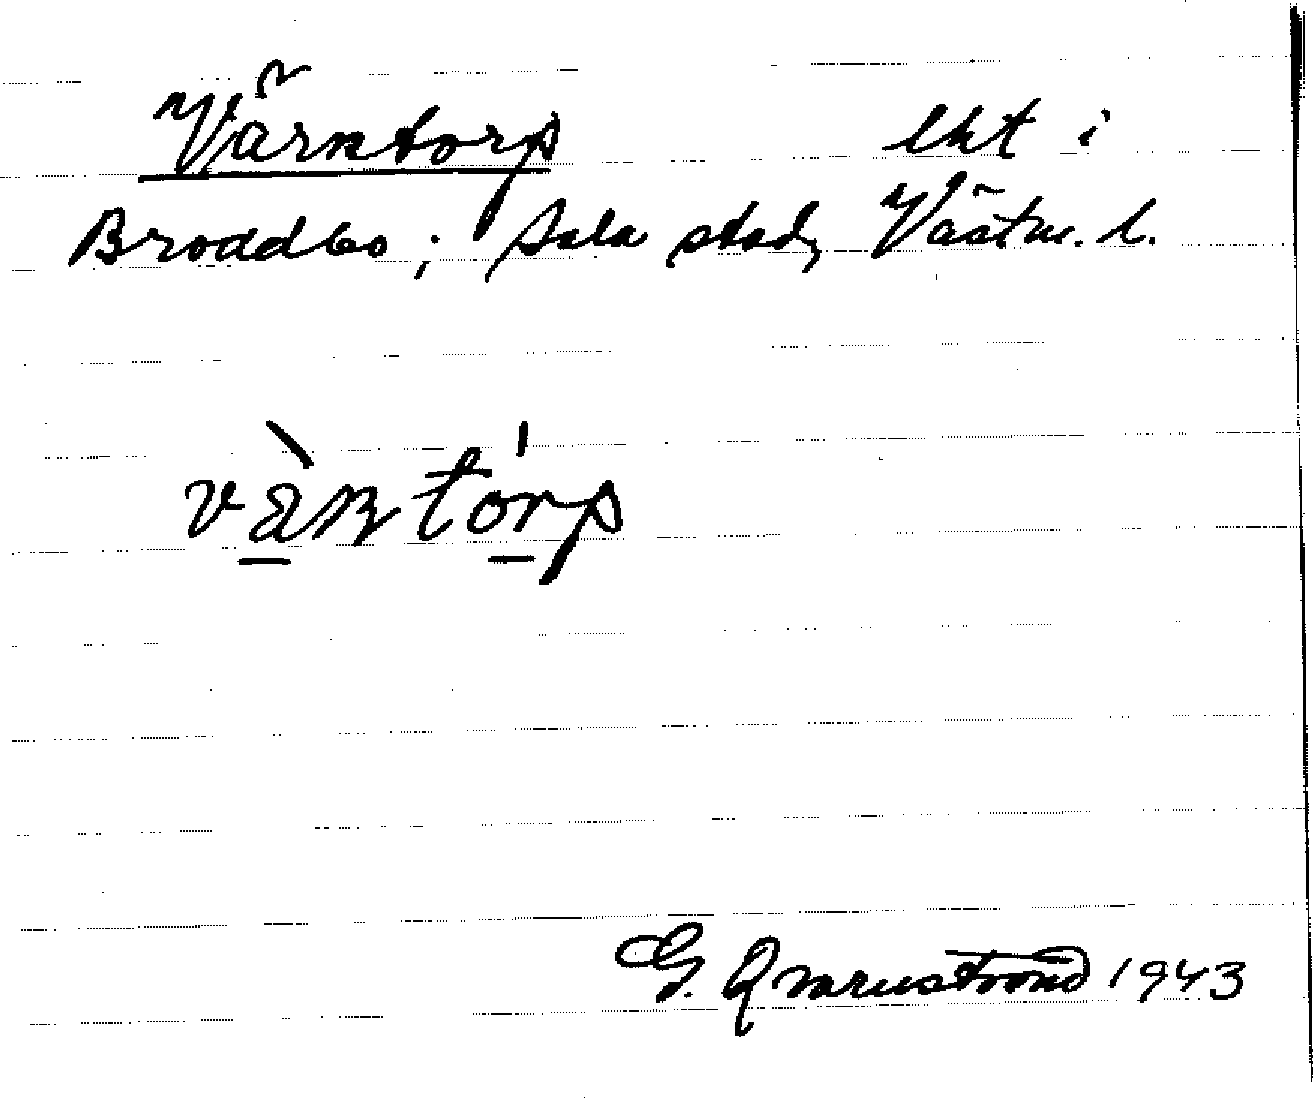 Värntorp lht i
Broddbo; Sala stad, Västm. l.
vä̀ntórp
G. Qvarnström 1943